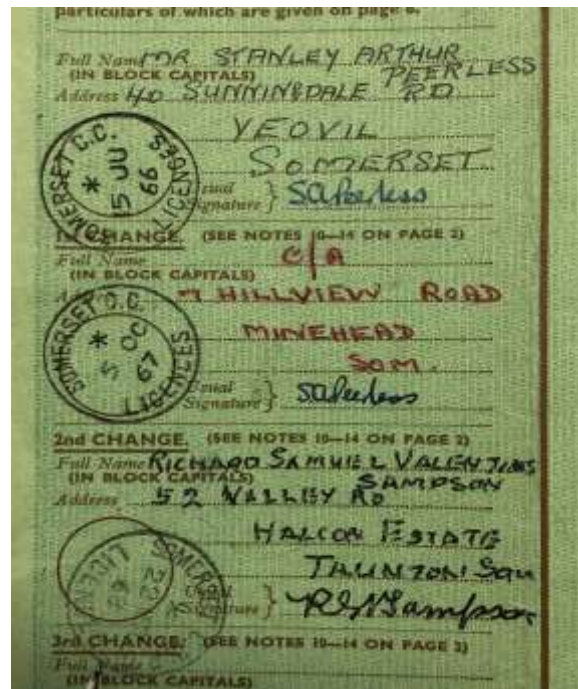 particulars of which are given on page 6.
Full Name MR STANLEY ARTHUR
(IN BLOCK CAPITALS) PEERLESS
Address 40 SUNNINGDALE RD
YEOVIL
SOMERSET
SOMERSET C.C. LICENCES
15 JU 66
Usual Signature } SAPeerless
1st CHANGE. (SEE NOTES 10—14 ON PAGE 2)
Full Name C/A
(IN BLOCK CAPITALS)
Address 7 HILLVIEW ROAD
MINEHEAD
SOM.
SOMERSET C.C. LICENCES
5 OC 67
Usual Signature } SAPeerless
2nd CHANGE. (SEE NOTES 10—14 ON PAGE 2)
Full Name RICHARD SAMUEL
(IN BLOCK CAPITALS) SAMPSON
Address 52 VALLEY RD
HALCON ESTATE
TAUNTON
SOMERSET
Usual Signature } RSVSampson
3rd CHANGE. (SEE NOTES 10—14 ON PAGE 2)
Full Name
(IN BLOCK CAPITALS)